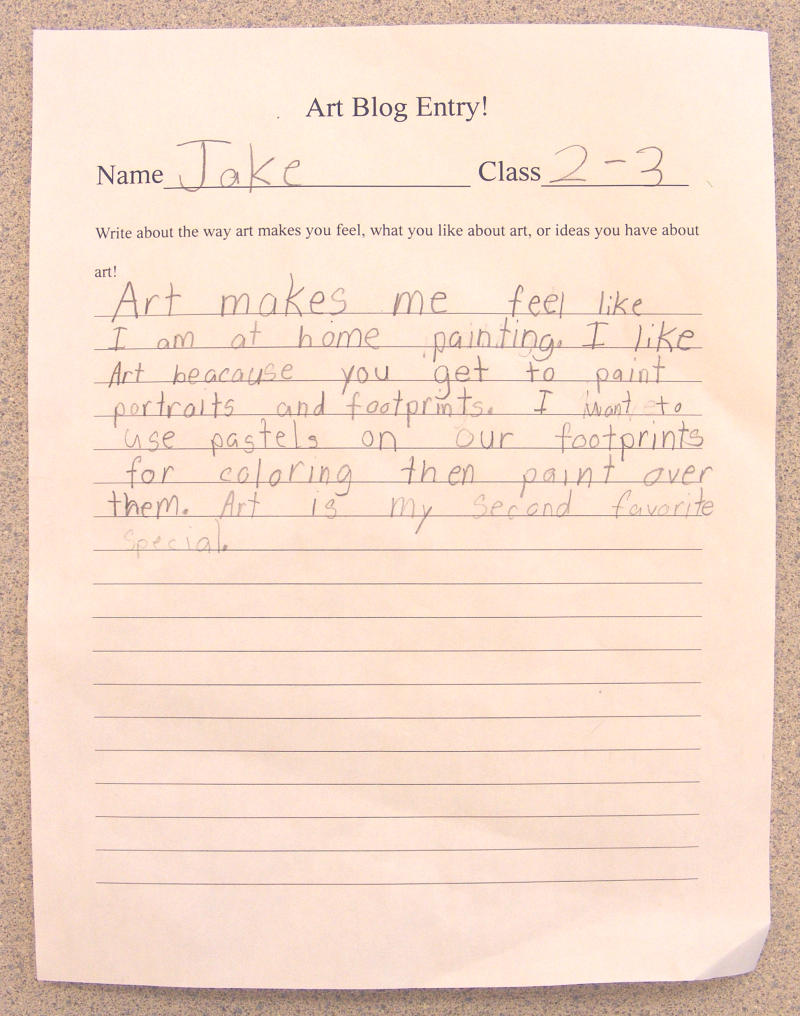 Art Blog Entry!
Name Jake Class 2-3
Write about the way art makes you feel, what you like about art, or ideas you have about
art!
Art makes me feel like
I am at home painting. I like
Art beacause you get to paint
portraits and footprints. I want to
use pastels on our footprints
for coloring then paint over
them. Art is my second favorite
special.